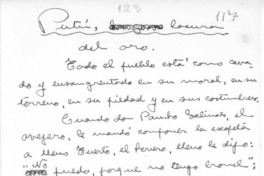 123
117
Putú, locura
del oro.
Todo el pueblo está como cava-
do y ensangrentado en su moral, en su
terreno, en su piedad y en sus costumbres.
Cuando don Pancho Salinas, el
ovejero, le mandó componer la
a Meno Tuerto, el Herrero, Meno le dijo:
"No puedo, porque no tengo bronce";